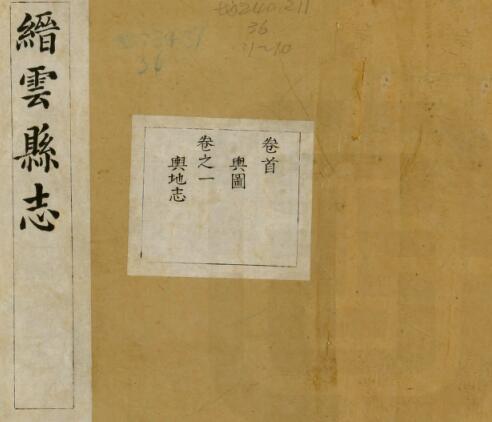 縉雲縣志
卷首
輿圖
卷之一
輿地志
36
1~10
36